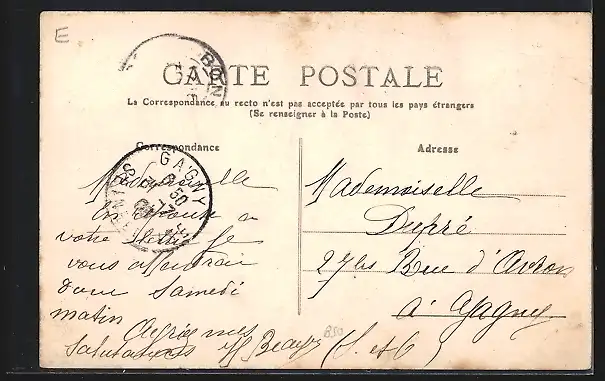 E
BON
CARTE POSTALE
La Correspondance au recto n'est pas acceptée par tous les pays étrangers
(Se renseigner à la Poste)
Correspondance
GAGNY
8 50
Mademoiselle
En réponse a
votre lettre je
vous attendrai
donc Samedi
matin
Agréez mes
Salutations
Adresse
Mademoiselle
Dupré
27 bis Rue d'Avron
à Gagny
(S. et O)
850